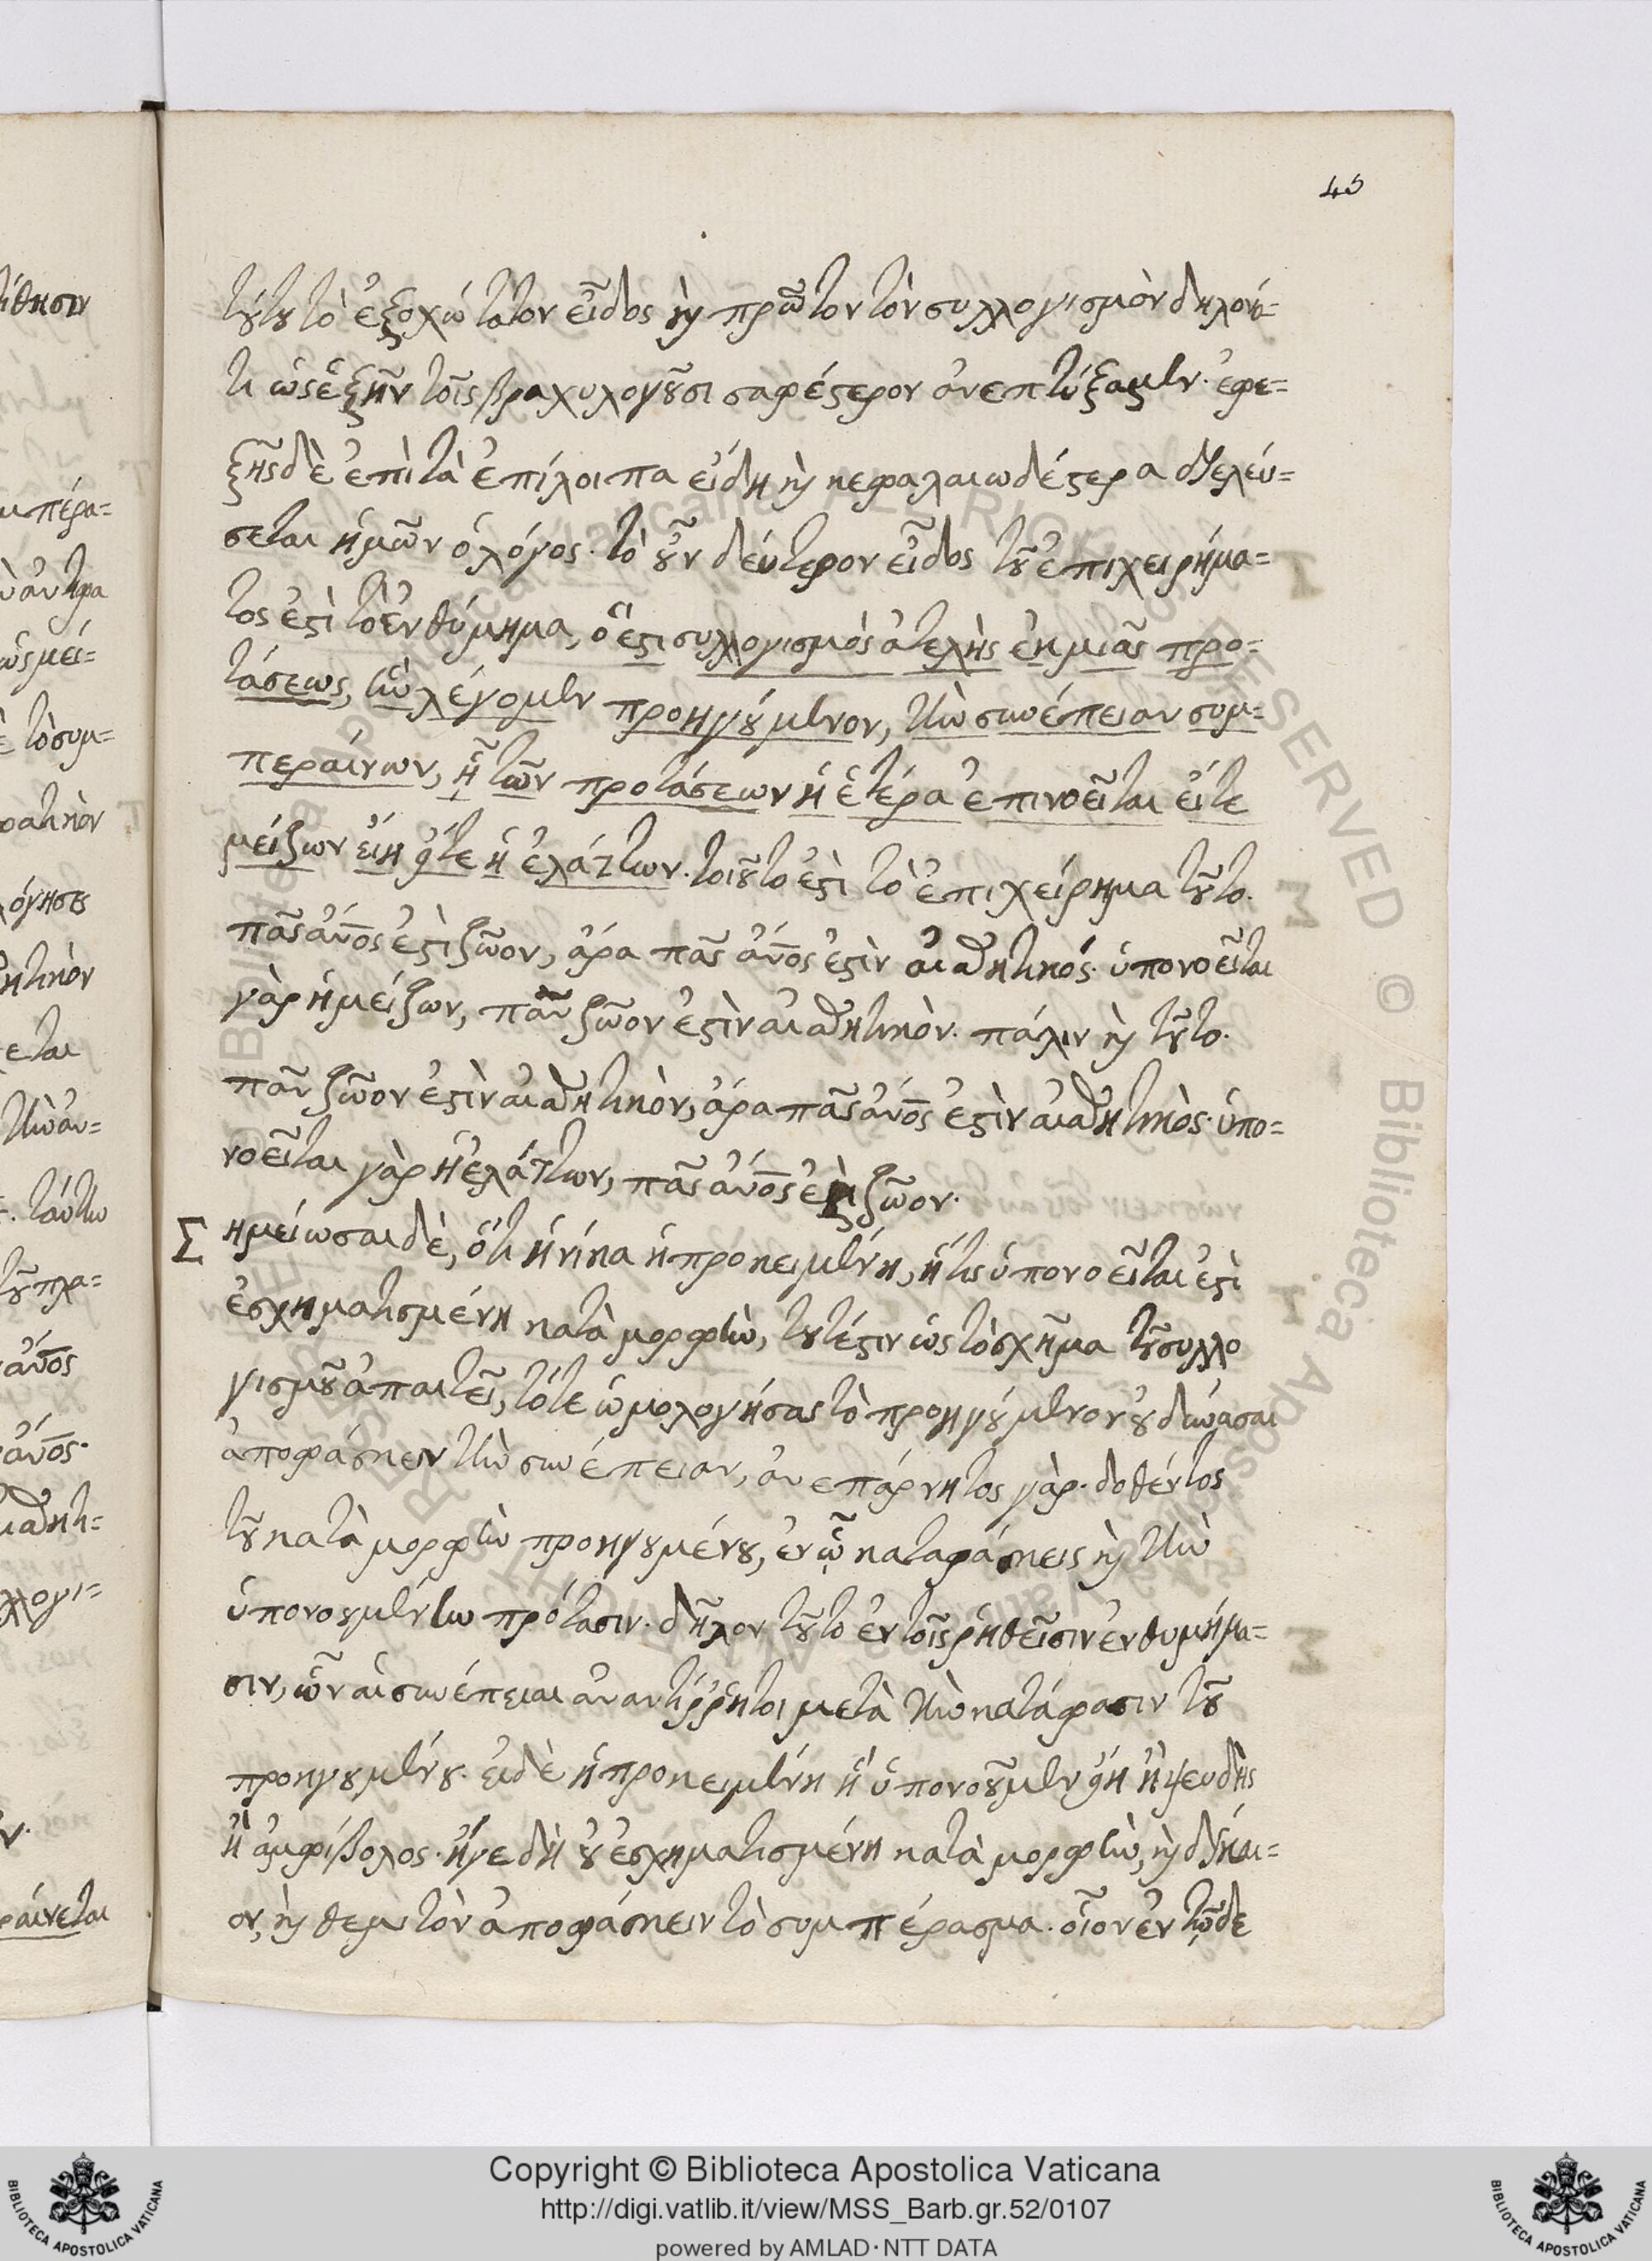 40
τούτου τὸ ἐξοχώτατον εἶδος καὶ πρῶτον τὸν συλλογισμὸν δηλονό=
τι ὡς ἐξῆν τοῖς βραχυλογοῦσι σαφέστερον ἀνεπτύξαμεν. ἐφε=
ξῆς δὲ ἐπὶ τὰ ἐπίλοιπα εἴδη καὶ κεφαλαιωδέστερα διελεύ=
σεται ἡμῶν ὁ λόγος. τὸ οὖν δεύτερον εἶδος τοῦ ἐπιχειρήμα=
τος ἐστὶ τὸ ἐνθύμημα, ὅ ἐστι συλλογισμὸς ἀτελὴς ἐκ μιᾶς προ=
τάσεως, ἣν λέγομεν προηγούμενον, τὴν συνέπειαν συμ=
περαίνων, ᾗ τῶν προτάσεων ἡ ἑτέρα ἐπινοεῖται εἴτε
μείζων εἴη εἴτε ἡ ἐλάττων. τοιοῦτο ἐστὶ τὸ ἐπιχείρημα τοῦτο.
πᾶς ἄνος ἐστὶ ζῶον, ἄρα πᾶς ἄνος ἐστὶν αἰσθητικός. ὑπονοεῖται
γὰρ ἡ μείζων, πᾶν ζῶον ἐστὶν αἰσθητικὸν. πάλιν καὶ τοῦτο.
πᾶν ζῶον ἐστὶν αἰσθητικὸν, ἄρα πᾶς ἄνος ἐστὶν αἰσθητικὸς. ὑπο=
νοεῖται γὰρ ἡ ἐλάττων, πᾶς ἄνος ἐστὶ ζῶον.
Σημείωσαι δὲ, ὅτι ἡνίκα ἡ προκειμένη, ἥτις ὑπονοεῖται ἐστὶ
ἐσχηματισμένη κατὰ μορφὴν, τουτέστιν ὡς τὸ σχῆμα τοῦ συλλο
γισμοῦ ἀπαιτεῖ, τότε ὡμολογήσας τὸ προηγούμενον οὐ δύνασαι
ἀποφάσκειν τὴν συνέπειαν, ἀνεπάρνητος γὰρ. δοθέντος
τοῦ κατὰ μορφὴν προηγουμένου, ἐν ᾧ καταφάσκεις καὶ τὴν
ὑπονοουμένην πρότασιν. δῆλον τοῦτο ἐν τοῖς ῥηθεῖσιν ἐνθυμήμα=
σιν, ὧν αἱ συνέπειαι ἀναντίῤῥητοι μετὰ τὴν κατάφασιν τοῦ
προηγουμένου. εἰ δὲ ἡ προκειμένη ἣ ὑπονοοῦμεν εἴη ἢ ψευδὴς
ἢ ἀμφίβολος. ἤγε δὴ οὐ ἐσχηματισμένη κατὰ μορφὴν, καὶ δίκαι=
ον, καὶ θεμιτὸν ἀποφάσκειν τὸ συμπέρασμα. οἷον ἐν τῷδε
Copyright © Biblioteca Apostolica Vaticana
http://digi.vatlib.it/view/MSS_Barb.gr.52/0107
powered by AMLAD·NTT DATA